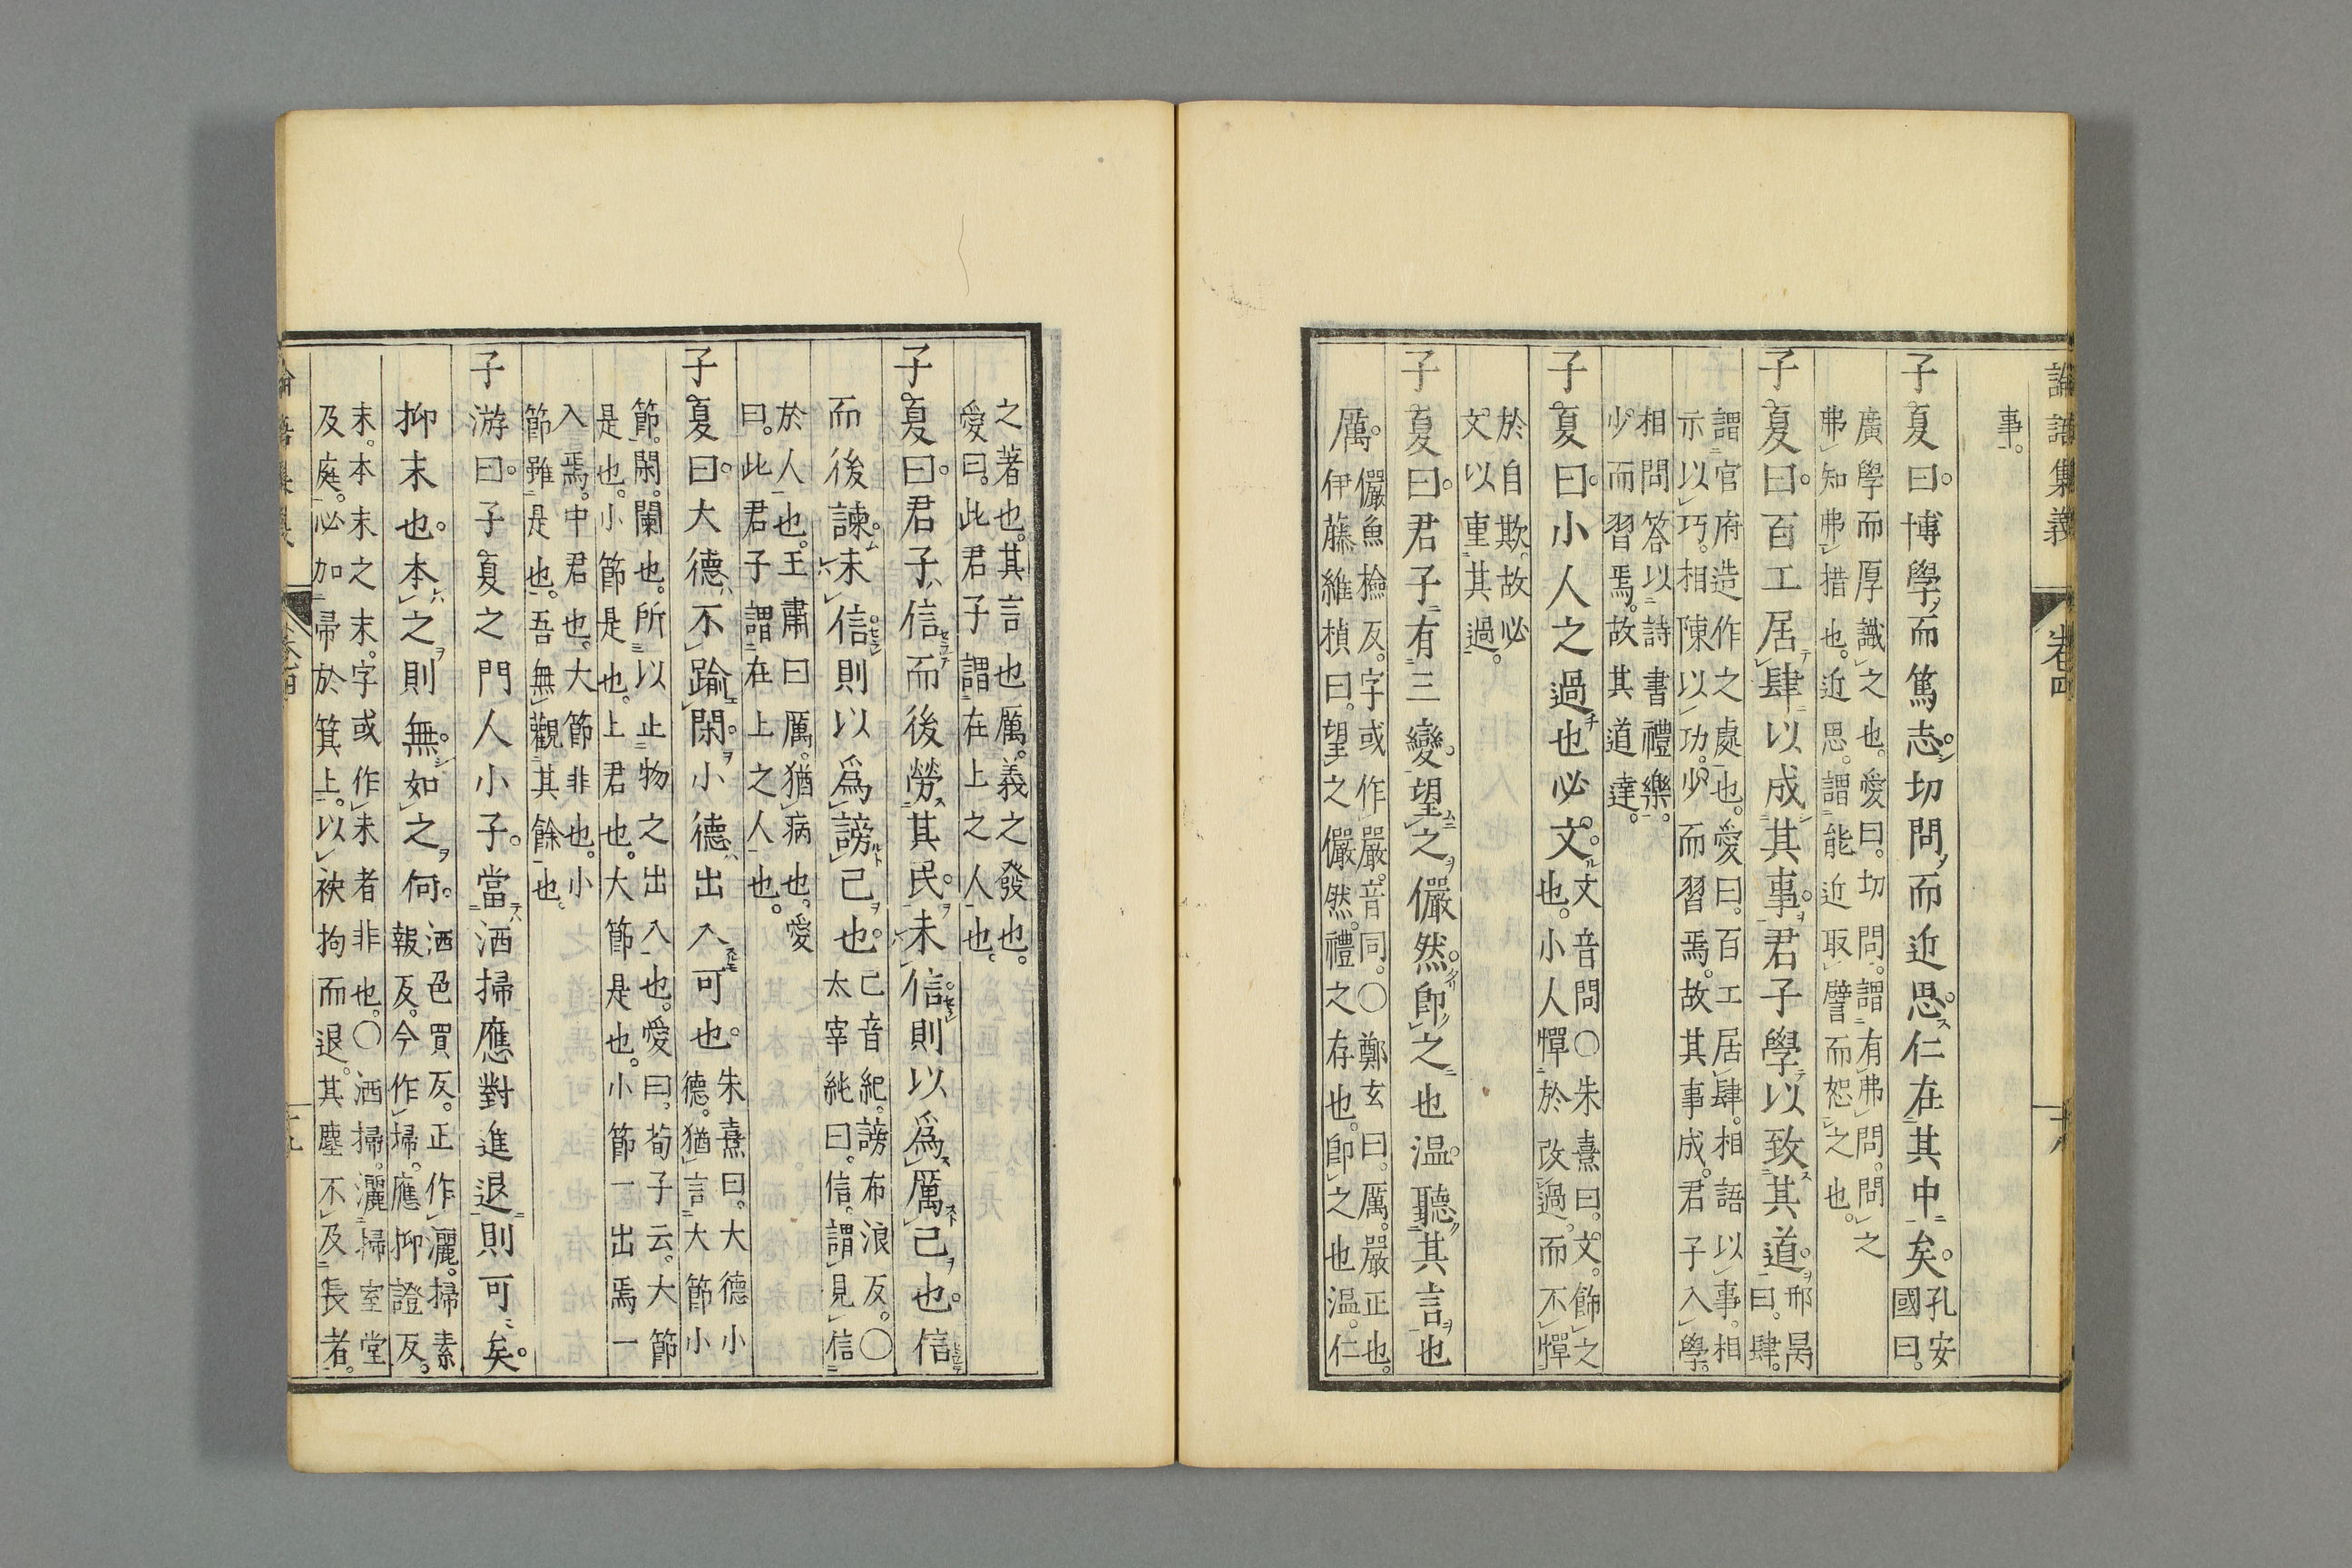 論語集義 卷四 十八
事。
子夏曰。博學而篤志。切問而近思。仁在其中矣。孔安
國曰。
廣學而厚識之也。愛曰。切問。謂有弗問。問之
弗知弗措也。近思。謂能近取譬而恕之也。
子夏曰。百工居肆以成其事。君子學以致其道。邢昺
曰。肆。
謂官府造作之處也。愛曰。百工居肆。相語以事。相
示以巧。相陳以功。少而習焉。故其事成。君子入學。
相問答以詩書禮樂。
少而習焉。故其道達。
子夏曰。小人之過也必文。文音問〇朱熹曰。文。飾之
也。小人憚於改過。而不憚
於自欺。故必
文以重其過。
子夏曰。君子有三變。望之儼然。卽之也温。聽其言也
厲。儼魚檢反。字或作嚴。音同。〇鄭玄曰。厲。嚴正也。
伊藤維楨曰。望之儼然。禮之存也。卽之也温。仁
之著也。其言也厲。義之發也。
愛曰。此君子謂在上之人也。
子夏曰。君子信而後勞其民。未信則以爲厲己也。信
而後諫。未信則以爲謗己也。己音紀。謗布浪反。〇
太宰純曰。信。謂見信
於人也。王肅曰厲。猶病也。愛
曰。此君子謂在上之人也。
子夏曰。大德不踰閑。小德出入可也。朱熹曰。大德小
德。猶言大節小
節。閑。闌也。所以止物之出入也。愛曰。荀子云。大節
是也。小節是也。上君也。大節是也。小節一出焉一
入焉。中君也。大節非也。小
節雖是也。吾無觀其餘也。
子游曰。子夏之門人小子。當洒掃應對進退則可矣。
抑末也。本之則無。如之何。洒色買反。正作灑。掃素
報反。今作埽。應抑證反。
末。本末之末。字或作未者非也。〇洒掃。灑掃室堂
及庭。必加帚於箕上。以袂拘而退。其塵不及長者。